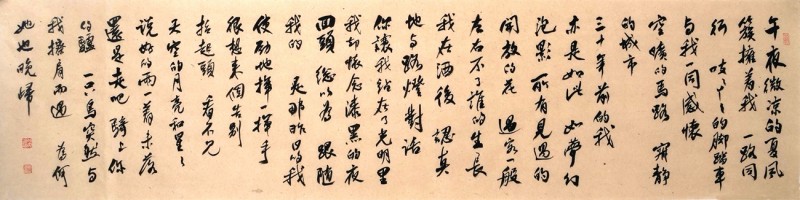 午夜微凉的夏風
簇擁着我 一路同
行 吱丫丫的脚踏車
与我一同感懷
空曠的馬路 寂静
的城市
三十年前的我
亦是如此 如夢幻
泡影 所有見過的
開放的花 過客一般
左右不了誰的生長
我在酒後 認真
地与路燈對話
你讓我站在了光明里
我却懷念漆黑的夜
回頭 總以為 跟随
我的 是那昨日的我
使劲地揮一揮手
很想来個告别
抬起頭 看不見
天空的月亮和星星
説好的雨 前未落
還是走吧 騎上你
的驢 一只馬 突然与
我擦肩而過 為何
她也晚歸